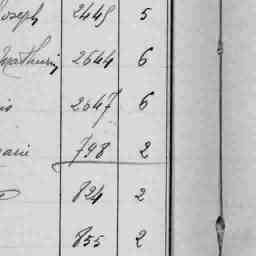 Joseph 2445 5
Mathurin 2644 6
is 2647 6
Marie 798 2
824 2
855 2